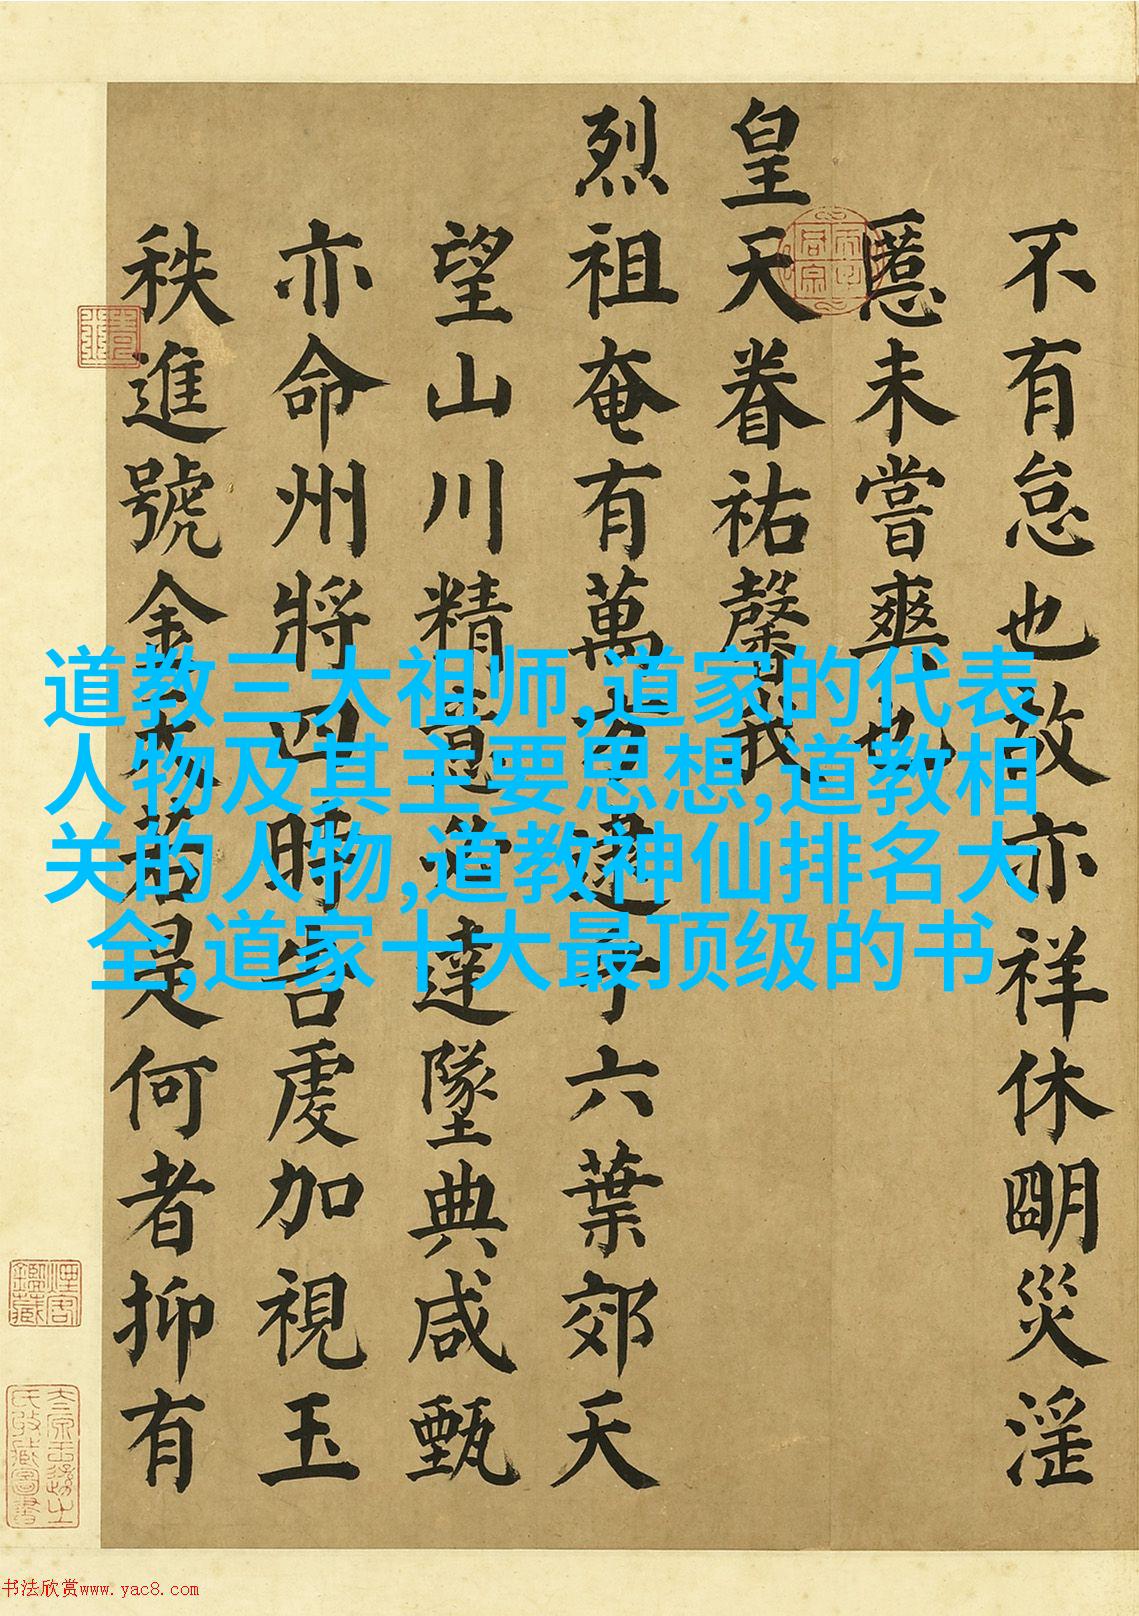 不有怠也故亦祥休明災淫
慝未嘗爽也
皇天眷祐馨我
烈祖奄有萬方逮于六葉郊天
望山川精意必達墜典咸甄
亦命州將四時告虔加視王
秩進號金天若是何者抑有
道教三大祖师,道家的代表
人物及其主要思想,道教相
关的人物,道教神仙排名大
全,道家十大最顶级的书
书法欣赏www.yac8.com